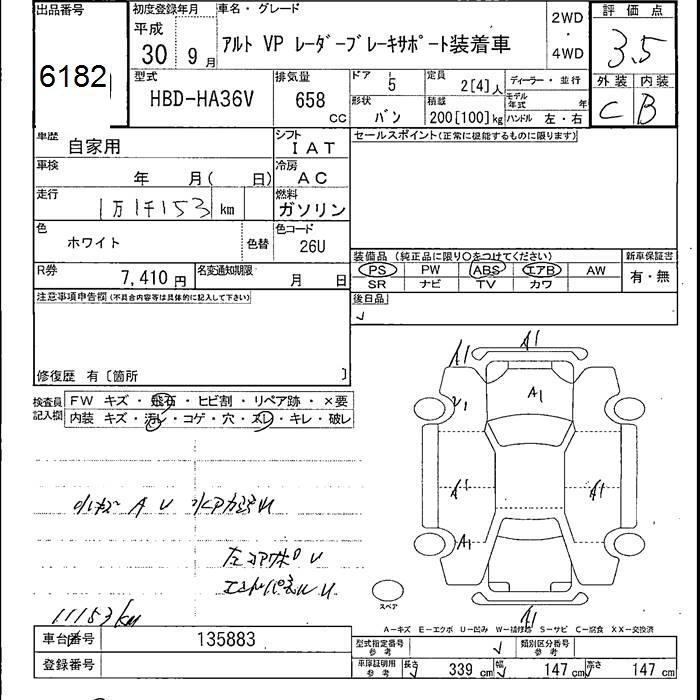 出品番号 初度登録年月 車名・グレード 評価点
6182 平成 30 9月 アルト VP レーダーブレーキサポート装着車 2WD・4WD 3.5
型式 排気量 ドア 5 定員 2[4]人 ディーラー・並行 外装 内装
HBD-HA36V 658 cc 形状 バン 積載 200[100]kg モデル年式 年 C B
ハンドル 左・右
車歴 自家用 シフト IAT セールスポイント(正常に機能するものに限ります)
車検 年 月( 日) 冷房 AC
走行 1万1千153 km 燃料 ガソリン
色 ホワイト 色替 色コード 26U
装備品 (純正品に限り〇をつけてください) 新車保証書
R券 7,410円 名変通知期限 月 日 PS PW ABS エアB AW 有・無
SR ナビ TV カワ
注意事項申告欄(不具合内容等は具体的に記入して下さい) 後日品
修復歴 有〔箇所 〕
検査員記入欄 FW キズ・飛石・ヒビ割・リペア跡・×要
内装 キズ・汚レ・コゲ・穴・スレ・キレ・破レ
A1 A1
A1
A1 A1
A1
A1
小キズ A U
11153km
スペア
A-キズ E-エクボ U-凹み W-補修跡 S-サビ C-腐食 XX-交換済
車台番号 135883 型式指定番号 参考 類別区分番号 参考
登録番号 車庫証明用 参考 長さ 339cm 幅 147cm 高さ 147cm